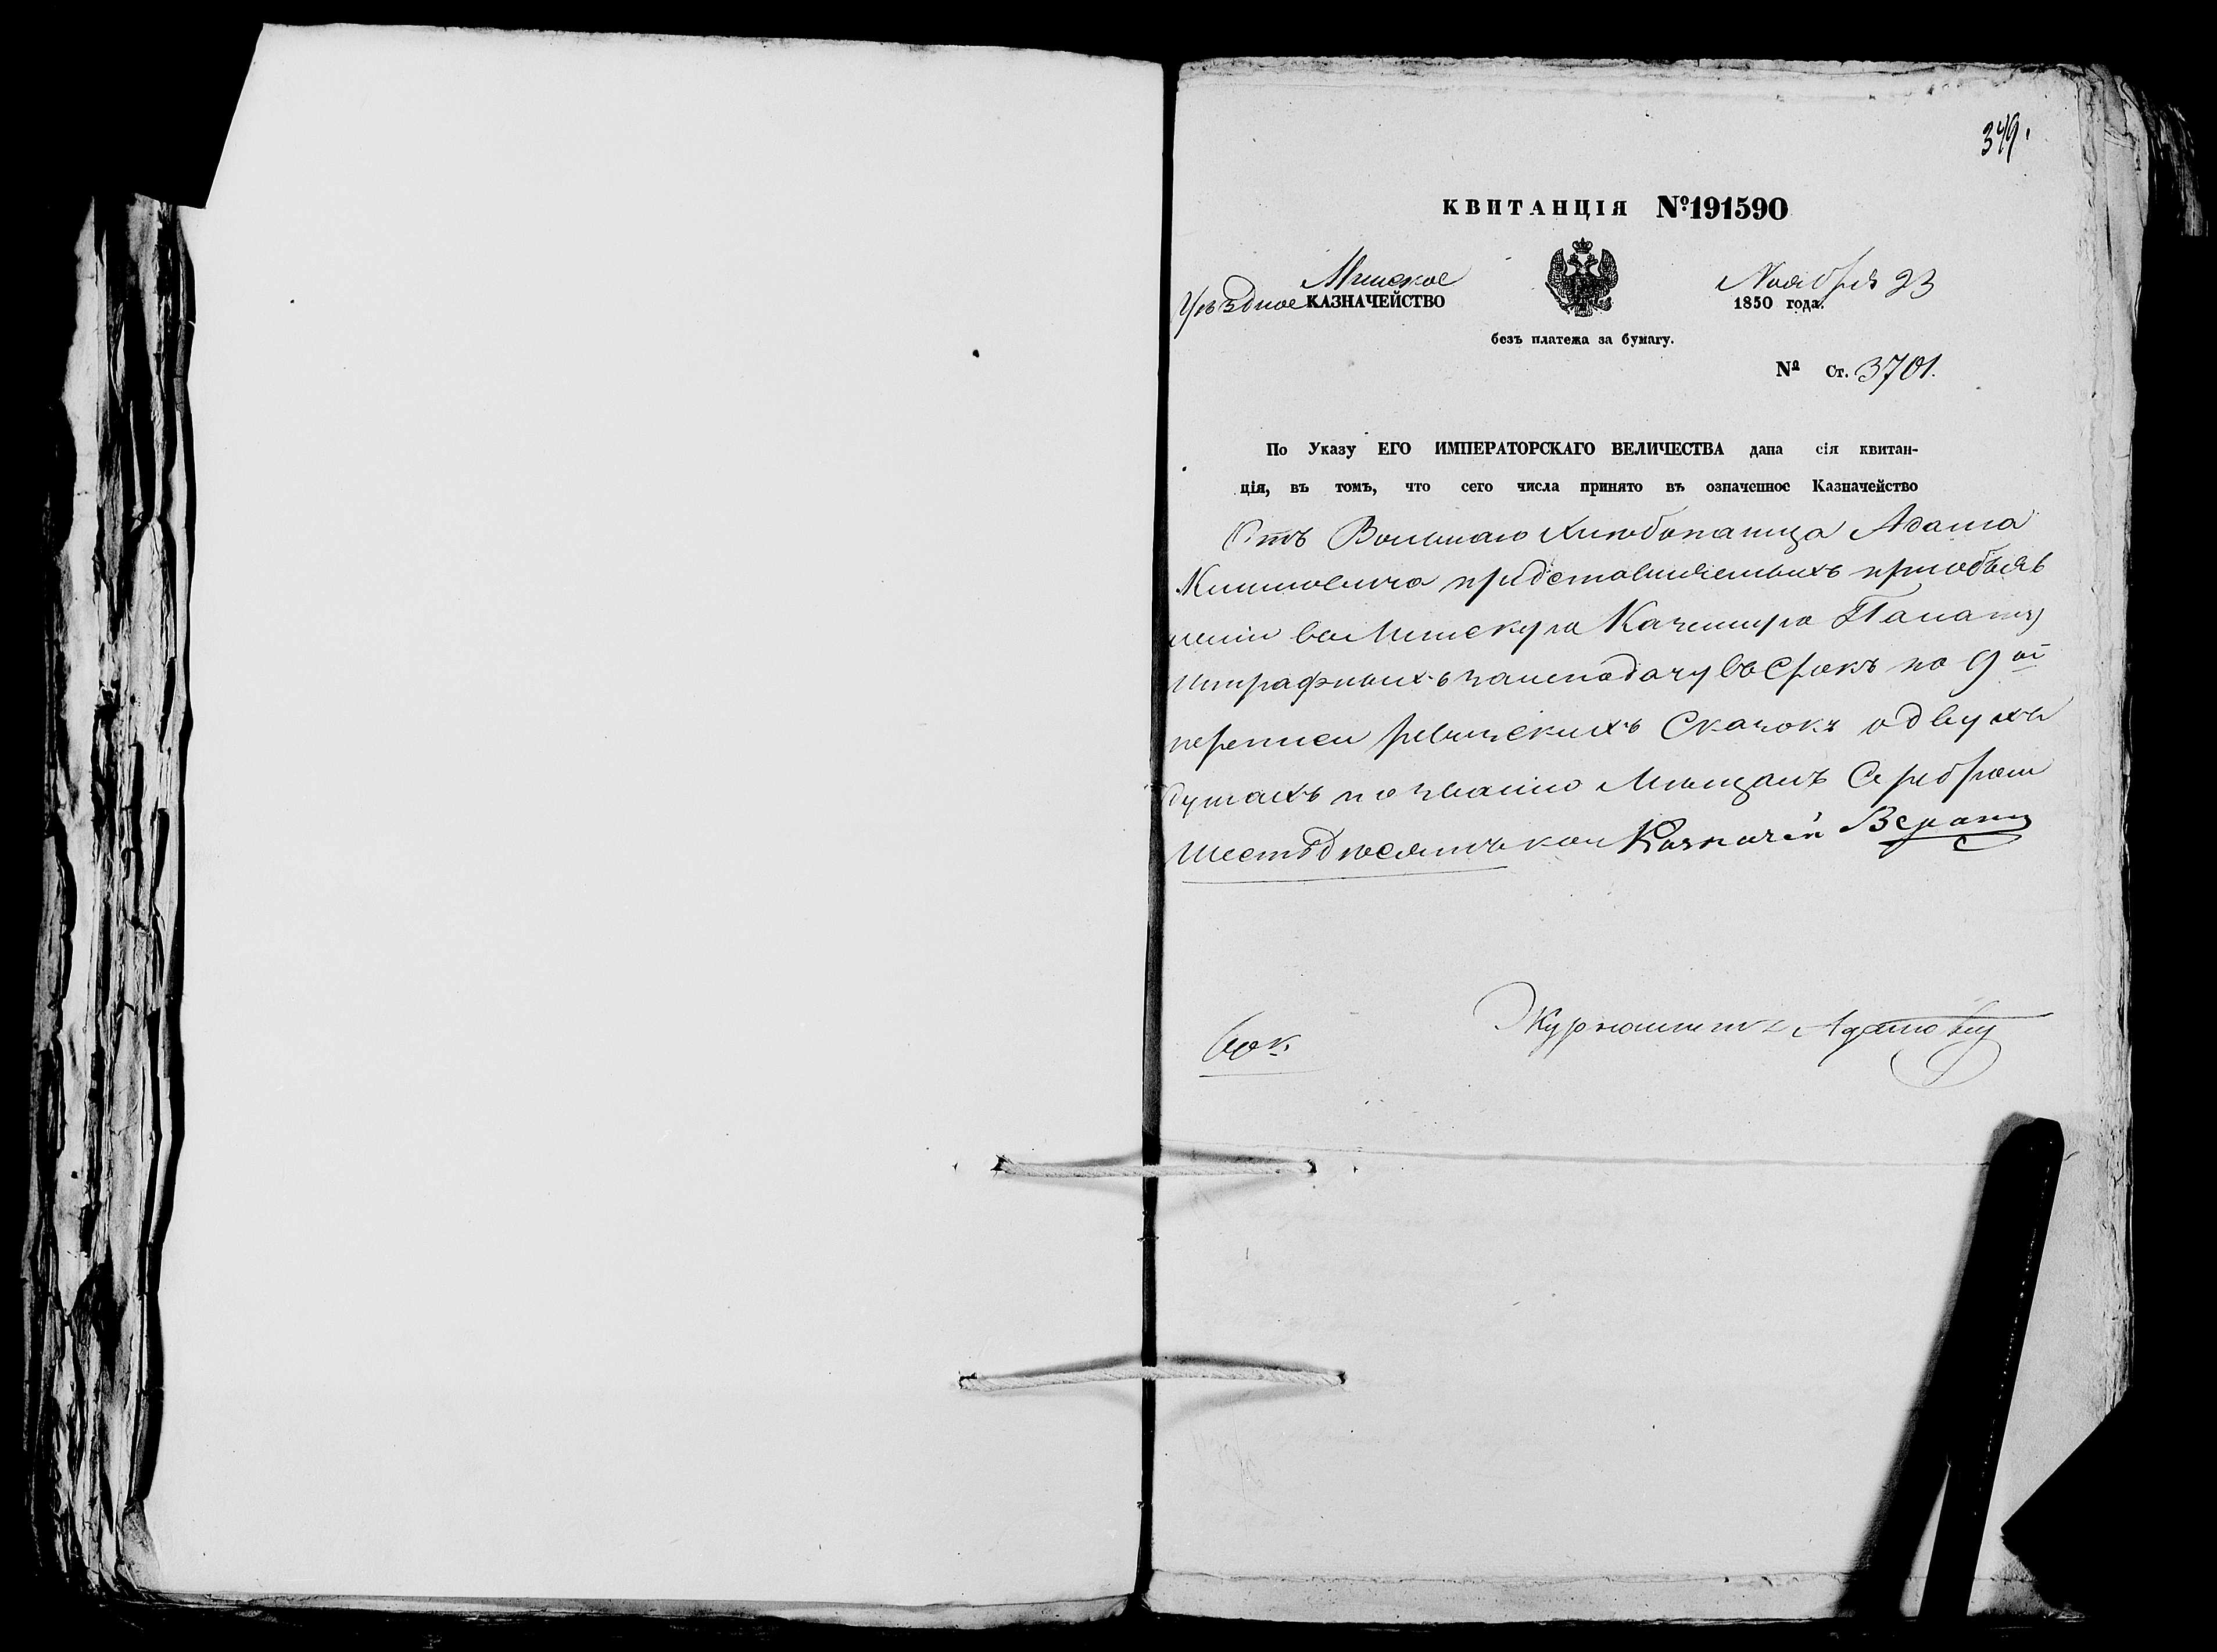 349.
КВИТАНЦІЯ №191590
Минское
Ноября 23
Уѣздное КАЗНАЧЕЙСТВО
1850 года.
безъ платежа за бумагу.
№ Ст. 3701.
По Указу ЕГО ИМПЕРАТОРСКАГО ВЕЛИЧЕСТВА дана сія квитан-
ція, въ томъ, что сего числа принято въ означенное Казначейство
Отъ Вольнаго Хлѣбопашца Адама
представленныхъ приобъяв
леніи Казимира
Штрафныхъ за неподачу въ срокъ по 9ой
переписи ревизскихъ Сказокъ о двухъ
душахъ по званію Мѣщанъ Серебромъ
Шестьдесятъ коп Казначей
60 к.
Журналистъ